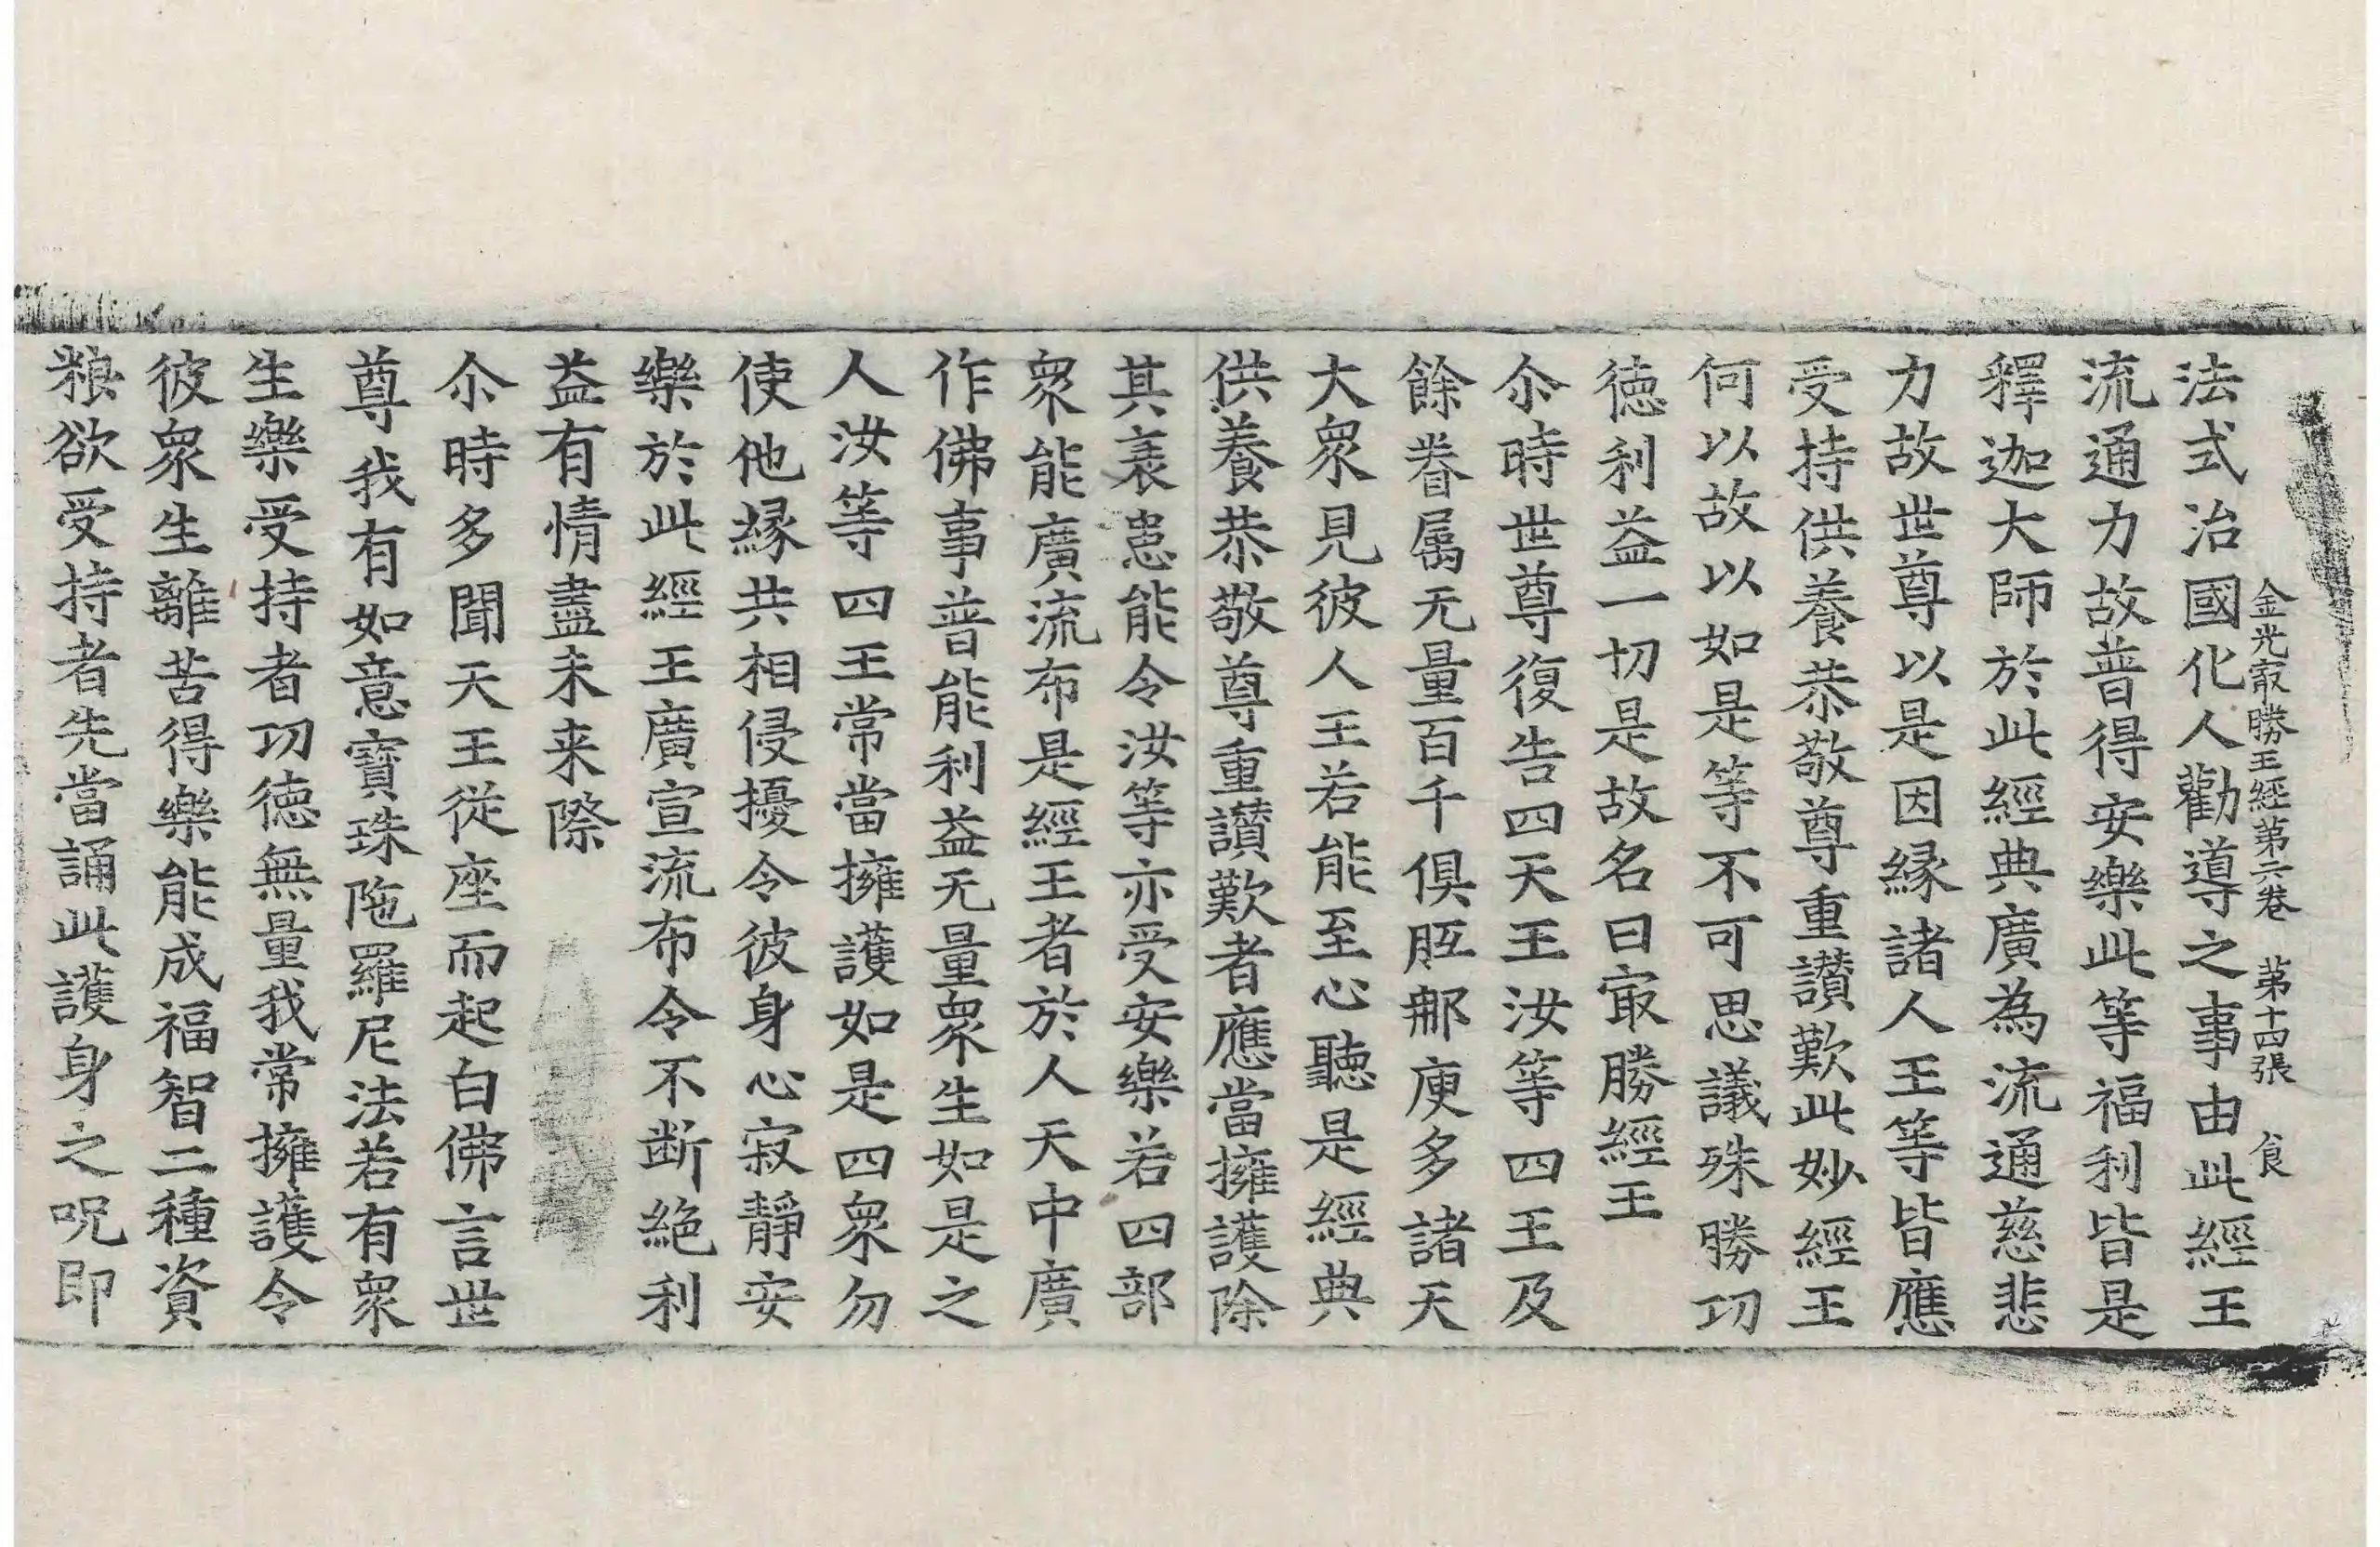 金光㝡勝王經第六卷　第十四張　食
法式治國化人勸導之事由此經王
流通力故普得安樂此等福利皆是
釋迦大師於此經典廣為流通慈悲
力故世尊以是因縁諸人王等皆應
受持供養恭敬尊重讃歎此妙經王
何以故以如是等不可思議殊勝功
徳利益一切是故名曰㝡勝經王
尒時世尊復告四天王汝等四王及
餘眷属无量百千俱胝郍庾多諸天
大衆見彼人王若能至心聽是經典
供養恭敬尊重讃歎者應當擁護除
其衰患能令汝等亦受安樂若四部
衆能廣流布是經王者於人天中廣
作佛事普能利益无量衆生如是之
人汝等四王常當擁護如是四衆勿
使他縁共相侵擾令彼身心寂靜安
樂於此經王廣宣流布令不断絶利
益有情盡未来際
尒時多聞天王従座而起白佛言世
尊我有如意寶珠陁羅尼法若有衆
生樂受持者功徳無量我常擁護令
彼衆生離苦得樂能成福智二種資
粮欲受持者先當誦此護身之呪即